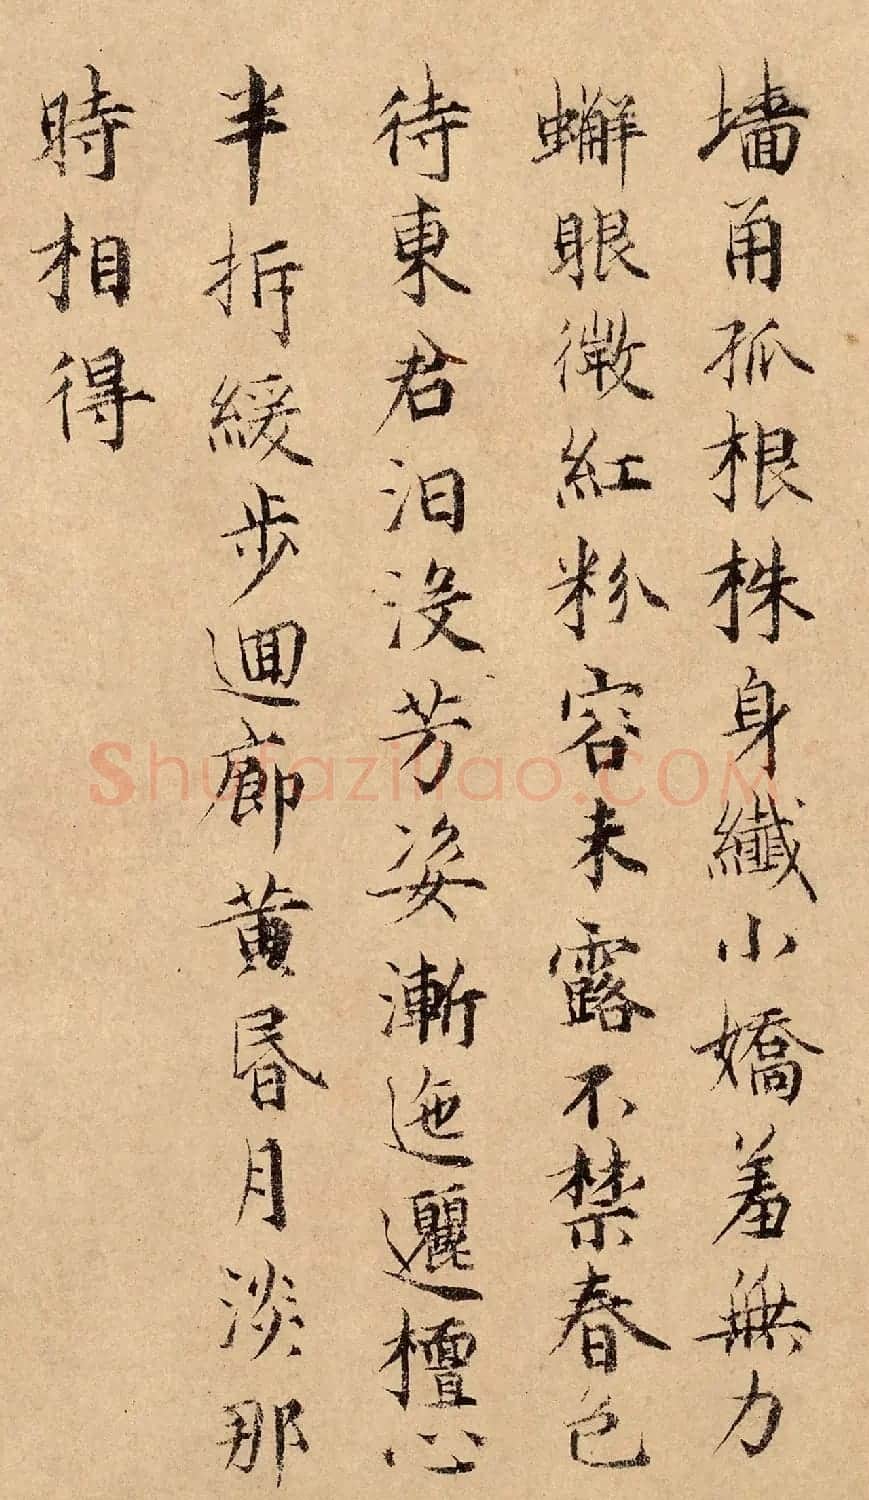 墙角孤根株身纖小嬌羞無力
蠏眼微紅粉容未露不禁春色
待東君汩沒芳姿漸迤邐檀心
半拆緩步迴廊黃昏月淡那
時相得
Shufaziliao.COM